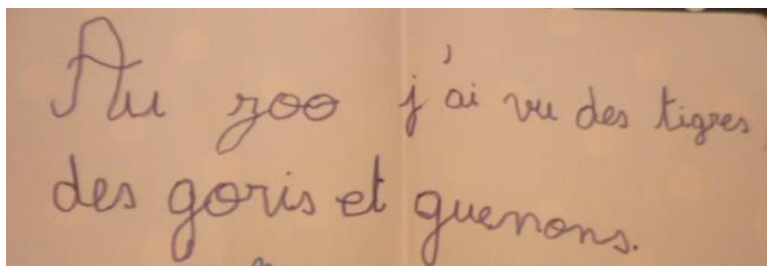 Au zoo j'ai vu des tigres,
des goris et guenons.